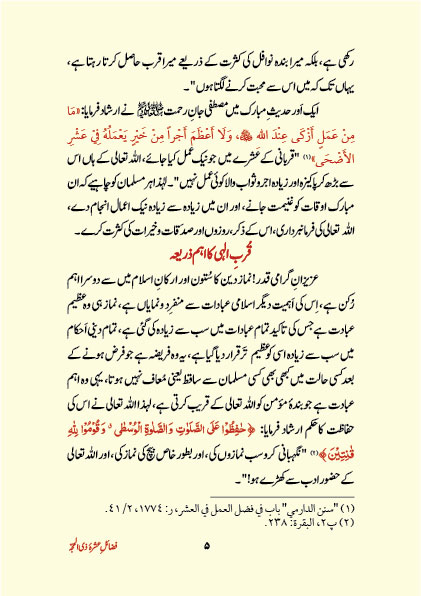 رکھی ہے، بلکہ میرا بندہ نوافل کی کثرت کے ذریعے میرا قرب حاصل کرتا رہتا ہے،
یہاں تک کہ میں اس سے محبت کرنے لگتا ہوں"۔
ایک اَور حدیثِ مبارک میں مصطفی جانِ رحمت ﷺ نے ارشاد فرمایا: «مَا
مِنْ عَمَلٍ أَزْكَى عِنْدَ الله ﷻ، وَلَا أَعْظَمَ أَجْراً مِنْ خَيْرٍ يَعْمَلُهُ فِي عَشْرِ
الأَضْحَى»(۱) "قربانی کے عَشرے میں جو نیک عمل کیا جائے، اللہ تعالی کے ہاں اس
سے بڑھ کر پاکیزہ اور زیادہ اجر و ثواب والا کوئی عمل نہیں"۔ لہذا ہر مسلمان کو چاہیے کہ ان
مبارک اوقات کو غنیمت جانے، اور ان میں زیادہ سے زیادہ نیک اعمال انجام دے،
اللہ تعالی کی فرمانبرداری، اس کے ذکر، روزوں اور صدَقات وخیرات کی کثرت کرے۔
قُربِ الٰہی کا اہم ذریعہ
عزیزانِ گرامی قدر! نماز دین کا ستُون اور ارکانِ اسلام میں سے دوسرا اہم
رُکن ہے، اِس کی اَہمیت دیگر اسلامی عبادات سے منفرِد ونمایاں ہے، نماز ہی وہ عظیم
عبادت ہے جس کی تاکید تمام عبادات میں سب سے زیادہ کی گئی ہے، تمام دینی اَحکام
میں سب سے زیادہ اسی کو عظیم تَر قرار دیا گیا ہے، یہ وہ فریضہ ہے جو فرض ہونے کے
بعد کسی حالت میں کبھی بھی کسی مسلمان سے ساقط یعنی مُعاف نہیں ہوتا، یہی وہ اہم
عبادت ہے جو بندۂ مؤمن کو اللہ تعالی کے قریب کرتی ہے، لہذا اللہ تعالی نے اس کی
حفاظت کا حکم ارشاد فرمایا: ﴿حٰفِظُوْا عَلَى الصَّلَوٰتِ وَالصَّلٰوةِ الْوُسْطٰى ۗ وَقُوْمُوْا لِلّٰهِ
قٰنِتِيْنَ﴾(۲) "نگہبانی کرو سب نمازوں کی، اور بطورِ خاص بیچ کی نماز کی، اور اللہ تعالی
کے حضور ادب سے کھڑے ہو!"۔
(۱) "سنن الدارمي" باب في فضل العمل في العشر، ر: ۱۷۷٤، ۲/٤۱.
(۲) پ۲، البقرة: ۲۳۸.
۵
فضائلِ عشرۂ ذی الحجہ